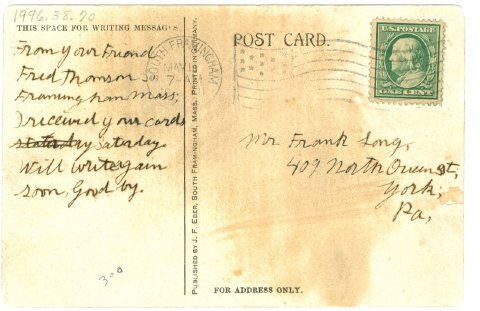 1996.38.70
THIS SPACE FOR WRITING MESSAGES
From your Friend
Fred Thomson
Framingham Mass,
I received your cards
saterday saterday.
Will write again
soon, Good by.
300
PUBLISHED BY J. F. EBER, SOUTH FRAMINGHAM, MASS. PRINTED IN GERMANY.
SOUTH FRAMINGHAM
MAY
7-A
POST CARD.
U.S. POSTAGE
ONE CENT
Mr Frank Long,
409 North Queen St,
York,
Pa,
FOR ADDRESS ONLY.